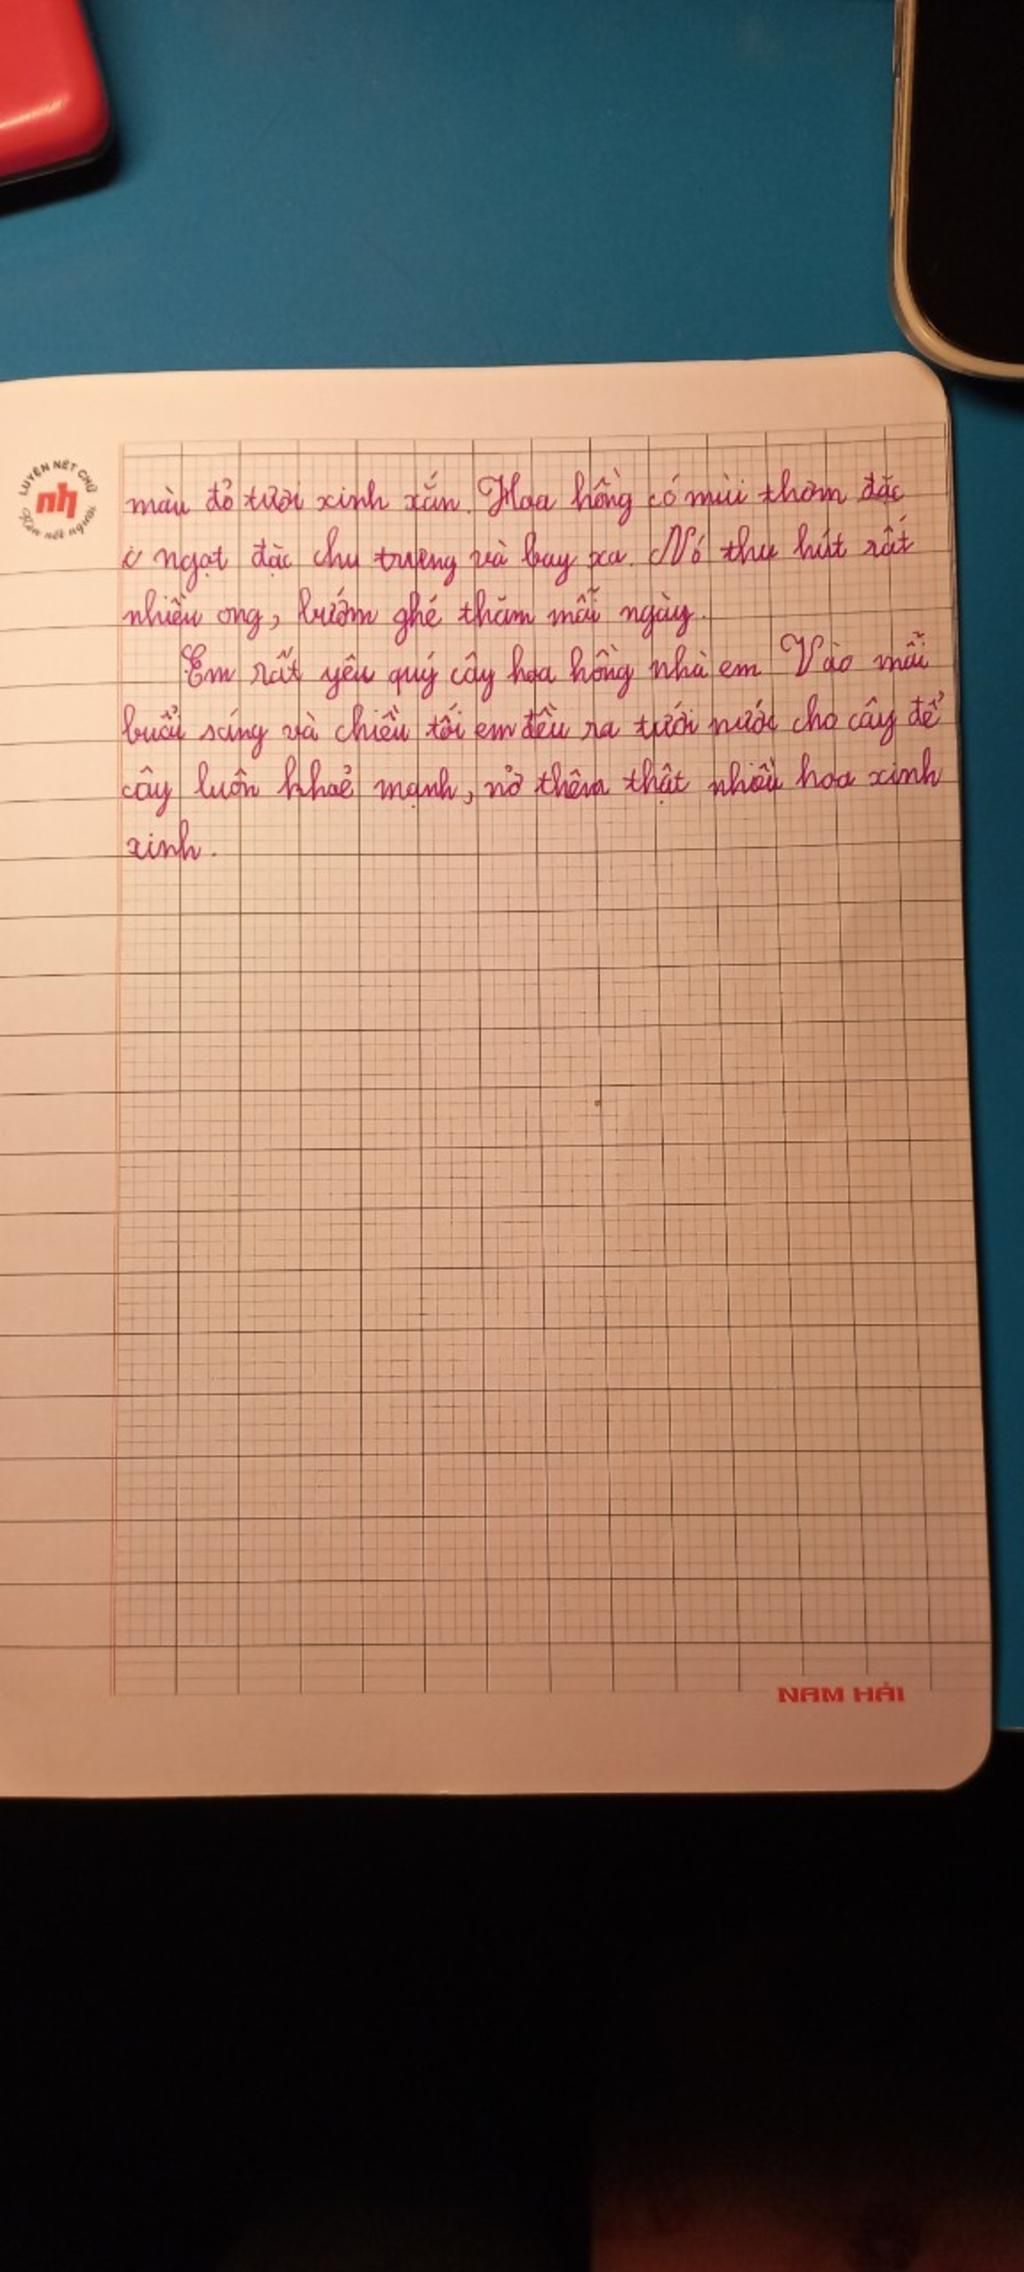 LUYỆN NÉT CHỮ
nh
Rèn nết người
màu đỏ tươi xinh xắn. Hoa hồng có mùi thơm đặc
ngạt đặc chu trưng và bay xa. Nó thu hút rất
nhiều ong, bướm ghé thăm mỗi ngày.
Em rất yêu quý cây hoa hồng nhà em Vào mỗi
buổi sáng và chiều tối em đều ra tưới nước cho cây để
cây luôn khoẻ mạnh, nở thêm thật nhiều hoa xinh
xinh.
NAM HẢI